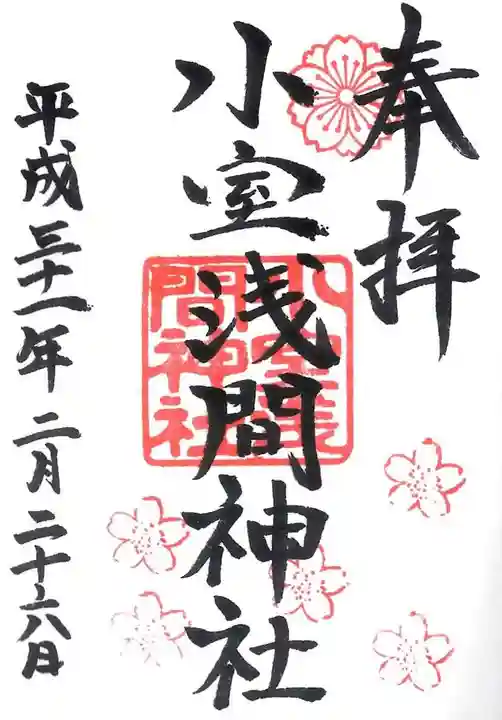 奉拝
小室浅間神社
小室浅間神社
平成三十一年二月二十六日